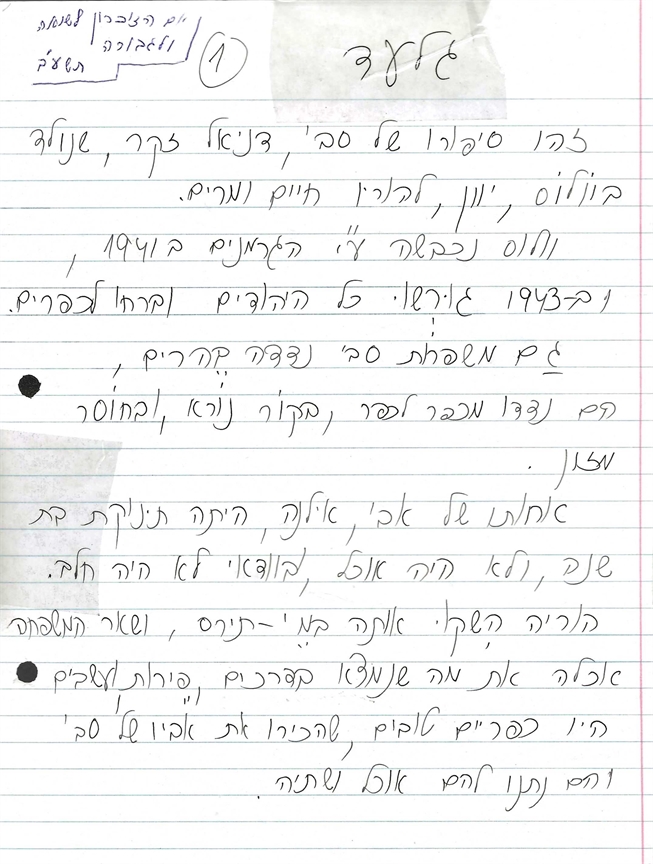 יום הזיכרון לשואה
ולגבורה
תשע"ב
1
גלעד
זהו סיפורו של סבי, דניאל זקר, שנולד
בוולוס, יוון, להוריו חיים ומרים.
וולוס נכבשה ע"י הגרמנים ב 1941,
וב-1943 גורשו כל היהודים וברחו לכפרים.
גם משפחת סבי נדדה בהרים,
הם נדדו מכפר לכפר, בקור נורא, ובחוסר
מזון.
אחותו של אבי, אילנה, היתה תינוקת בת
שנה, ולא היה אוכל, בוודאי לא היה חלב.
הוריה השקו אותה במי-תירס, ושאר המשפחה
אכלה את מה שנמצא בדרכים, פירות ועשבים
היו כפריים טובים, שהכירו את אביו של סבי
והם נתנו להם אוכל ושתיה.